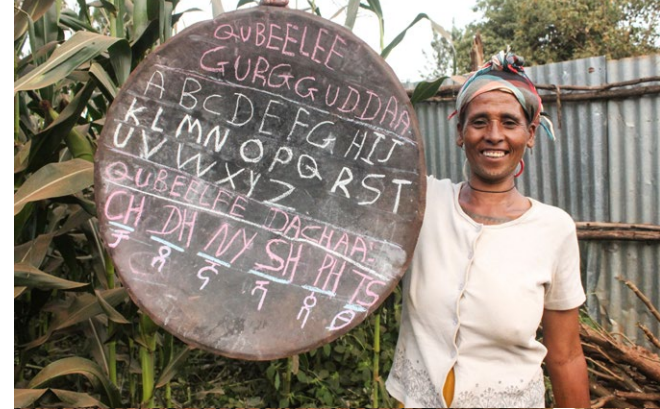 QUBEELEE
GURGGUDDAA
A B C D E F G H I J
K L M N O P Q R S T
U V W X Y Z
QUBEELEE DACHAA:
CH DH NY SH PH TS